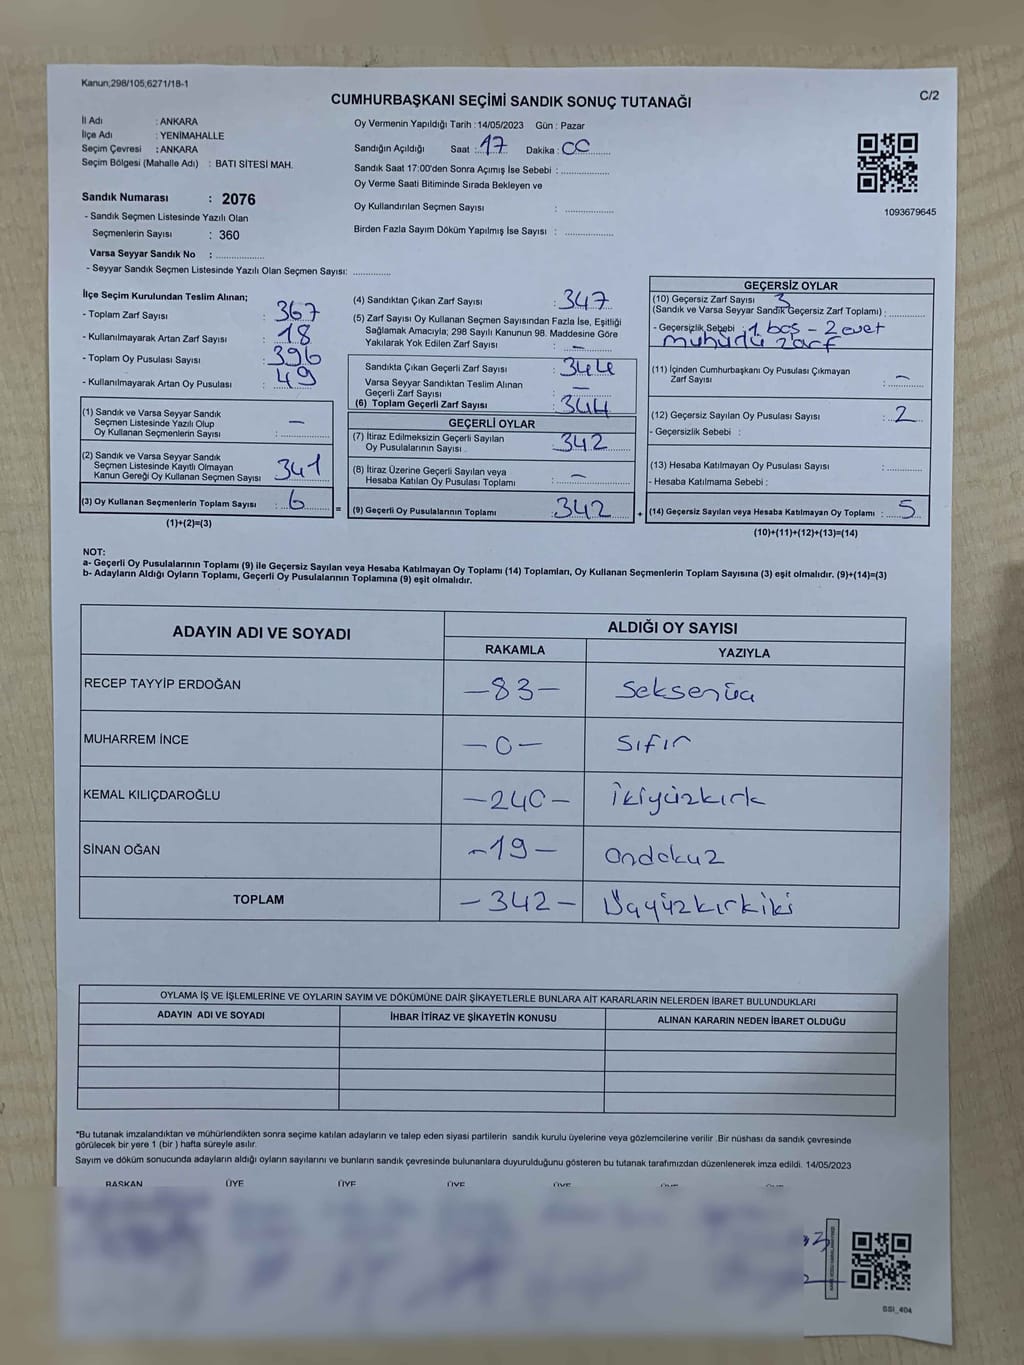 Kanun;298/105;6271/18-1
C/2
CUMHURBAŞKANI SEÇİMİ SANDIK SONUÇ TUTANAĞI
İl Adı : ANKARA
İlçe Adı : YENİMAHALLE
Seçim Çevresi : ANKARA
Seçim Bölgesi (Mahalle Adı) : BATI SİTESİ MAH.
Sandık Numarası : 2076
- Sandık Seçmen Listesinde Yazılı Olan
Seçmenlerin Sayısı : 360
Varsa Seyyar Sandık No : ................
- Seyyar Sandık Seçmen Listesinde Yazılı Olan Seçmen Sayısı: ..............
Oy Vermenin Yapıldığı Tarih : 14/05/2023 Gün : Pazar
Sandığın Açıldığı Saat : 17 Dakika : 00
Sandık Saat 17:00'den Sonra Açımış İse Sebebi : ................
Oy Verme Saati Bitiminde Sırada Bekleyen ve
Oy Kullandırılan Seçmen Sayısı : ................
Birden Fazla Sayım Döküm Yapılmış İse Sayısı : ................
1093679645
İlçe Seçim Kurulundan Teslim Alınan;
- Toplam Zarf Sayısı : 367
- Kullanılmayarak Artan Zarf Sayısı : 18
- Toplam Oy Pusulası Sayısı : 396
- Kullanılmayarak Artan Oy Pusulası : 49
(1) Sandık ve Varsa Seyyar Sandık
Seçmen Listesinde Yazılı Olup
Oy Kullanan Seçmenlerin Sayısı : —
(2) Sandık ve Varsa Seyyar Sandık
Seçmen Listesinde Kayıtlı Olmayan
Kanun Gereği Oy Kullanan Seçmen Sayısı : 341
(3) Oy Kullanan Seçmenlerin Toplam Sayısı : 6
(1)+(2)=(3)
(4) Sandıktan Çıkan Zarf Sayısı : 347
(5) Zarf Sayısı Oy Kullanan Seçmen Sayısından Fazla İse, Eşitliği
Sağlamak Amacıyla; 298 Sayılı Kanunun 98. Maddesine Göre
Yakılarak Yok Edilen Zarf Sayısı : —
Sandıkta Çıkan Geçerli Zarf Sayısı : 344
Varsa Seyyar Sandıktan Teslim Alınan
Geçerli Zarf Sayısı : —
(6) Toplam Geçerli Zarf Sayısı : 344
GEÇERLİ OYLAR
(7) İtiraz Edilmeksizin Geçerli Sayılan
Oy Pusulalarının Sayısı : 342
(8) İtiraz Üzerine Geçerli Sayılan veya
Hesaba Katılan Oy Pusulası Toplamı : —
= (9) Geçerli Oy Pusulalarının Toplamı : 342
GEÇERSİZ OYLAR
(10) Geçersiz Zarf Sayısı 3
(Sandık ve Varsa Seyyar Sandık Geçersiz Zarf Toplamı) : ............
- Geçersizlik Sebebi : 1 boş - 2 evet
mühürlü zarf
(11) İçinden Cumhurbaşkanı Oy Pusulası Çıkmayan
Zarf Sayısı : —
(12) Geçersiz Sayılan Oy Pusulası Sayısı : 2
- Geçersizlik Sebebi :
(13) Hesaba Katılmayan Oy Pusulası Sayısı : ............
- Hesaba Katılmama Sebebi :
+ (14) Geçersiz Sayılan veya Hesaba Katılmayan Oy Toplamı : 5
(10)+(11)+(12)+(13)=(14)
NOT:
a- Geçerli Oy Pusulalarının Toplamı (9) ile Geçersiz Sayılan veya Hesaba Katılmayan Oy Toplamı (14) Toplamları, Oy Kullanan Seçmenlerin Toplam Sayısına (3) eşit olmalıdır. (9)+(14)=(3)
b- Adayların Aldığı Oyların Toplamı, Geçerli Oy Pusulalarının Toplamına (9) eşit olmalıdır.
ADAYIN ADI VE SOYADI ALDIĞI OY SAYISI
RAKAMLA YAZIYLA
RECEP TAYYİP ERDOĞAN -83- Seksenüç
MUHARREM İNCE -0- Sıfır
KEMAL KILIÇDAROĞLU -240- İkiyüzkırk
SİNAN OĞAN -19- Ondokuz
TOPLAM -342- Üçyüzkırkiki
OYLAMA İŞ VE İŞLEMLERİNE VE OYLARIN SAYIM VE DÖKÜMÜNE DAİR ŞİKAYETLERLE BUNLARA AİT KARARLARIN NELERDEN İBARET BULUNDUKLARI
ADAYIN ADI VE SOYADI İHBAR İTİRAZ VE ŞİKAYETİN KONUSU ALINAN KARARIN NEDEN İBARET OLDUĞU
*Bu tutanak imzalandıktan ve mühürlendikten sonra seçime katılan adayların ve talep eden siyasi partilerin sandık kurulu üyelerine veya gözlemcilerine verilir .Bir nüshası da sandık çevresinde
görülecek bir yere 1 (bir ) hafta süreyle asılır.
Sayım ve döküm sonucunda adayların aldığı oyların sayılarını ve bunların sandık çevresinde bulunanlara duyurulduğunu gösteren bu tutanak tarafımızdan düzenlenerek imza edildi. 14/05/2023
BAŞKAN ÜYE ÜYE ÜYE ÜYE
SSI_404